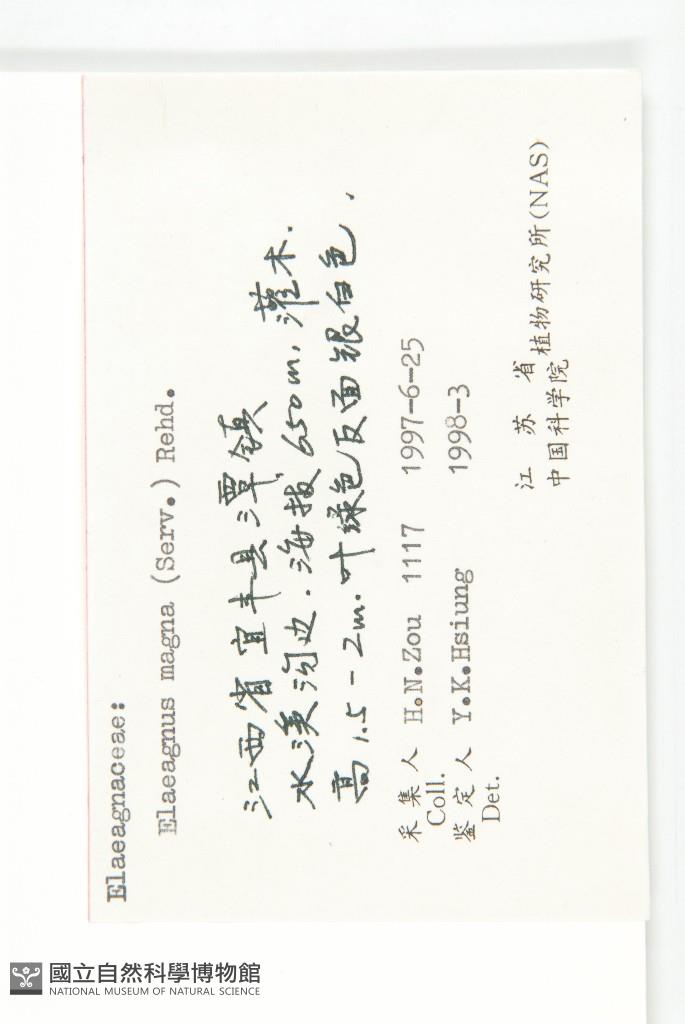 Elaeagnaceae:
Elaeagnus magna (Serv.) Rehd.
江西省宜丰县潭镇
水溪沟边. 海拔650m, 灌木.
高1.5-2m. 叶绿色反面银白色.
采集人 H.N.Zou 1117 1997-6-25
Coll.
鉴定人 Y.K.Hsiung 1998-3
Det.
江苏省
中国科学院植物研究所(NAS)
國立自然科學博物館
NATIONAL MUSEUM OF NATURAL SCIENCE